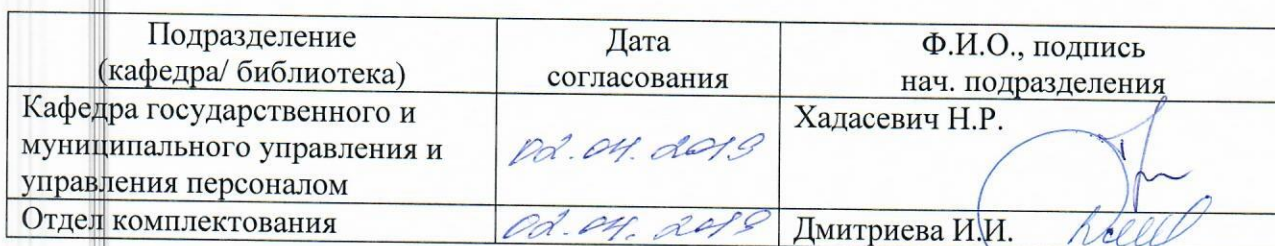 Подразделение
(кафедра/ библиотека)
Дата
согласования
Ф.И.О., подпись
нач. подразделения
Кафедра государственного и
муниципального управления и
управления персоналом
02.04.2019
Хадасевич Н.Р.
Отдел комплектования
02.04.2019
Дмитриева И.И.